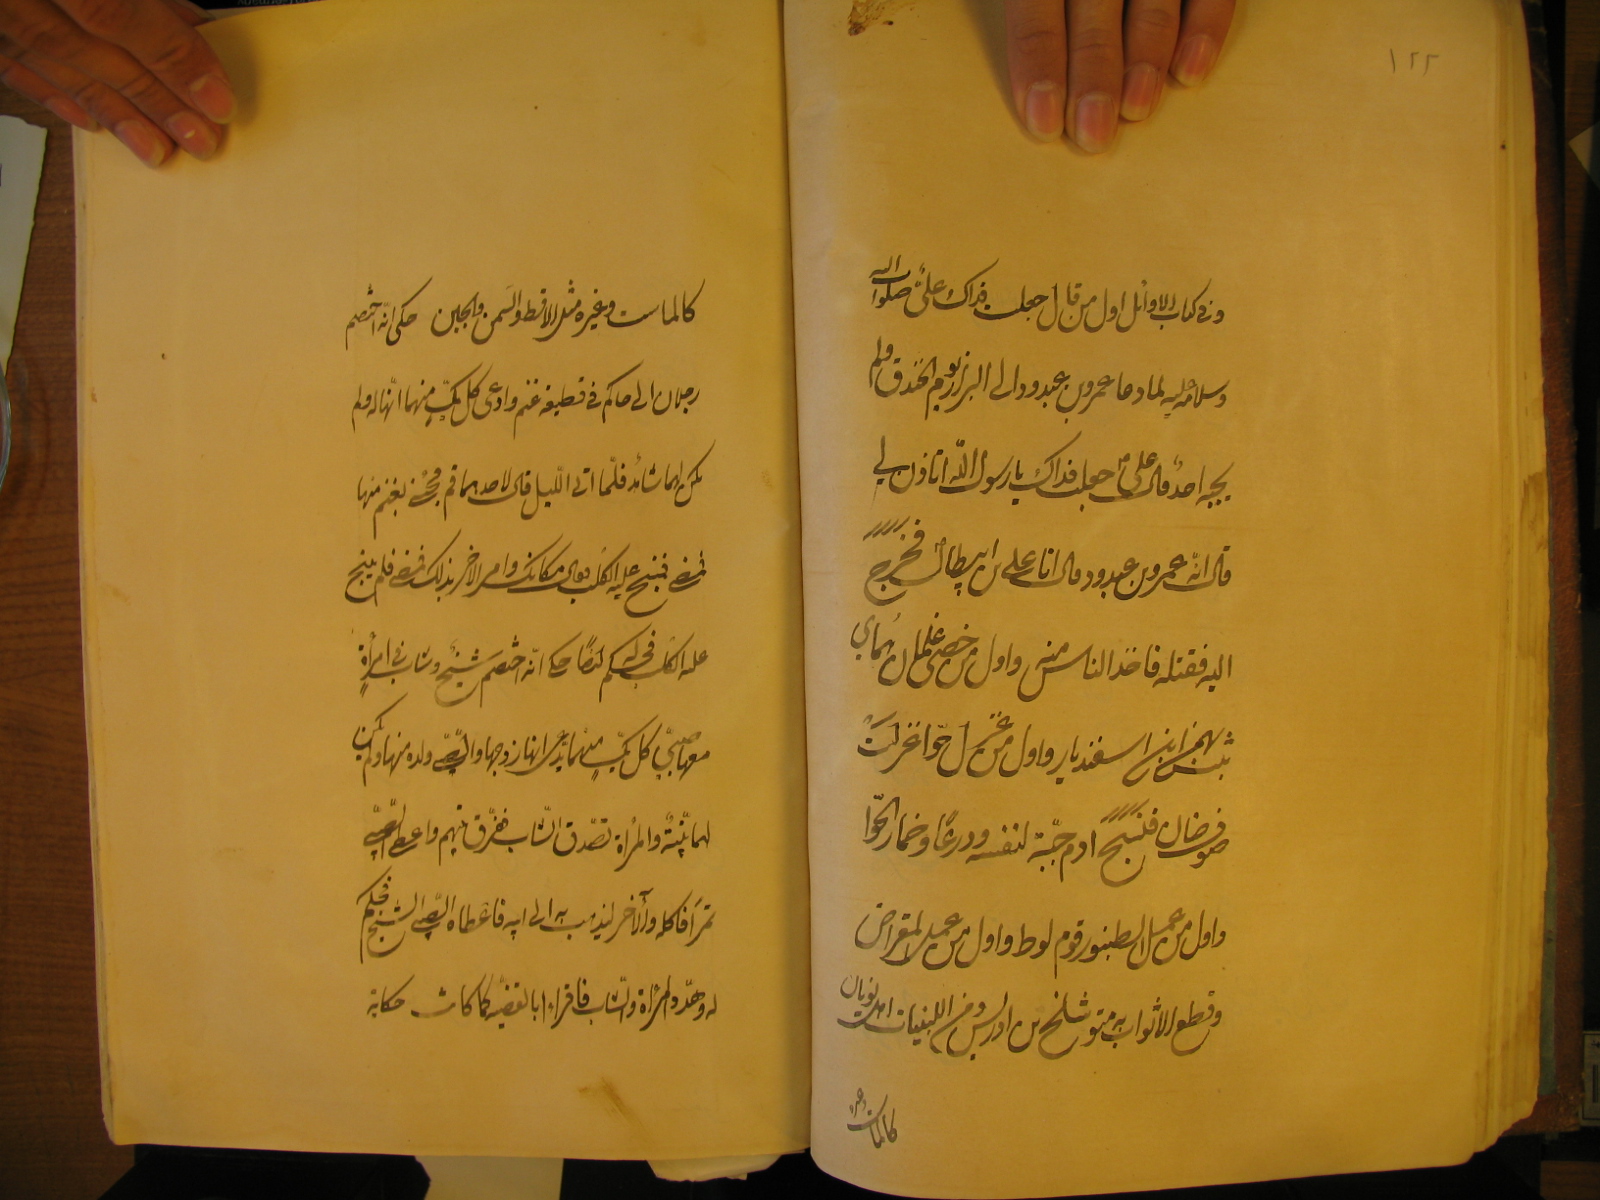 ١٢٢
وفي كتاب الاوائل اول من قال جعلت فداك علي صلوات الله
وسلامه عليه لما دعا عمرو بن عبدود الى البراز يوم الخندق ولم
يجبه احد قال علي جعلت فداك يا رسول الله اتاذن لي
قال انه عمرو بن عبدود قال انا علي بن ابيطالب فخرج
اليه فقتله فاخذ الناس منه واول من خصى غلمان هماي
بنت بهمن ابن اسفنديار واول من غزل حوا غزلت
صوف ضان فنسج ادم جبة لنفسه ودرعًا وخمار الحوا
واول من عمل الطنبور قوم لوط واول من عمل المقراض
وقطع الاثواب به متوشلخ بن ادريس ومن اللبنيات
كالماست وغيره
كالماست وغيره مثل الاقط والسمن والجبن حكى انه اختصم
رجلان الى حاكم في قطيعة غنم وادعى كل منهما انها له ولم
يكن لهما شاهد فلما اتى الليل قال لاحدهما قم فجئني بغنم منها
فمضى فنبح عليه الكلب فقال مكانك وامر الاخر بذلك فمضى فلم ينبح
عليه الكلب فحكم له بكم ايضًا حكى انه اختصم شيخ وشاب في امرأة
معها صبي كل منهما يدعى انها زوجها والصبي ولده منها ولم يكن
لهما بينة والمرأة تصدق الشاب ففرق بينهم واعطى الصبي
تمرًا فاكله والآخر ليذهب به الى ابيه فاعطاه الصبي الشيخ فحكم
له وهدد المرأة والشاب فاقراء بالقضية كما كانت حكاية